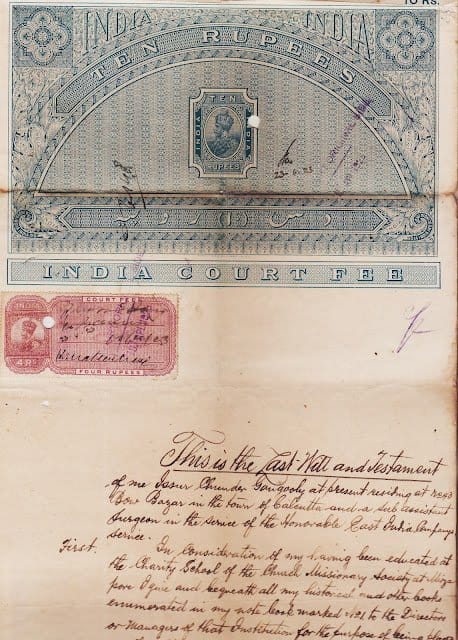 10 Rs.
INDIA INDIA
TEN RUPEES
TEN
INDIA INDIA
RUPEES
23-6-23
دس روپیہ
INDIA COURT FEE
COURT FEES
INDIA
4RS
FOUR RUPEES
This is the Last Will and Testament
of me Issur Chunder Gangooly at present residing at No 43
Bow Bazar in the town of Calcutta and a sub assistant
Surgeon in the service of the Honorable East India Companys
service.
First. In Consideration of my having been educated at
the Charity School of the Church Missionary Society at Mirza
pore I give and bequeath all my historical and other books
enumerated in my note book marked No1 to the Directors
or Managers of that Institution for the purpose of being